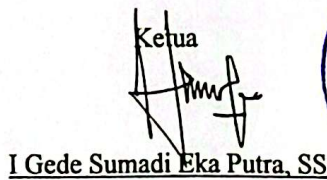 Ketua
I Gede Sumadi Eka Putra, SS